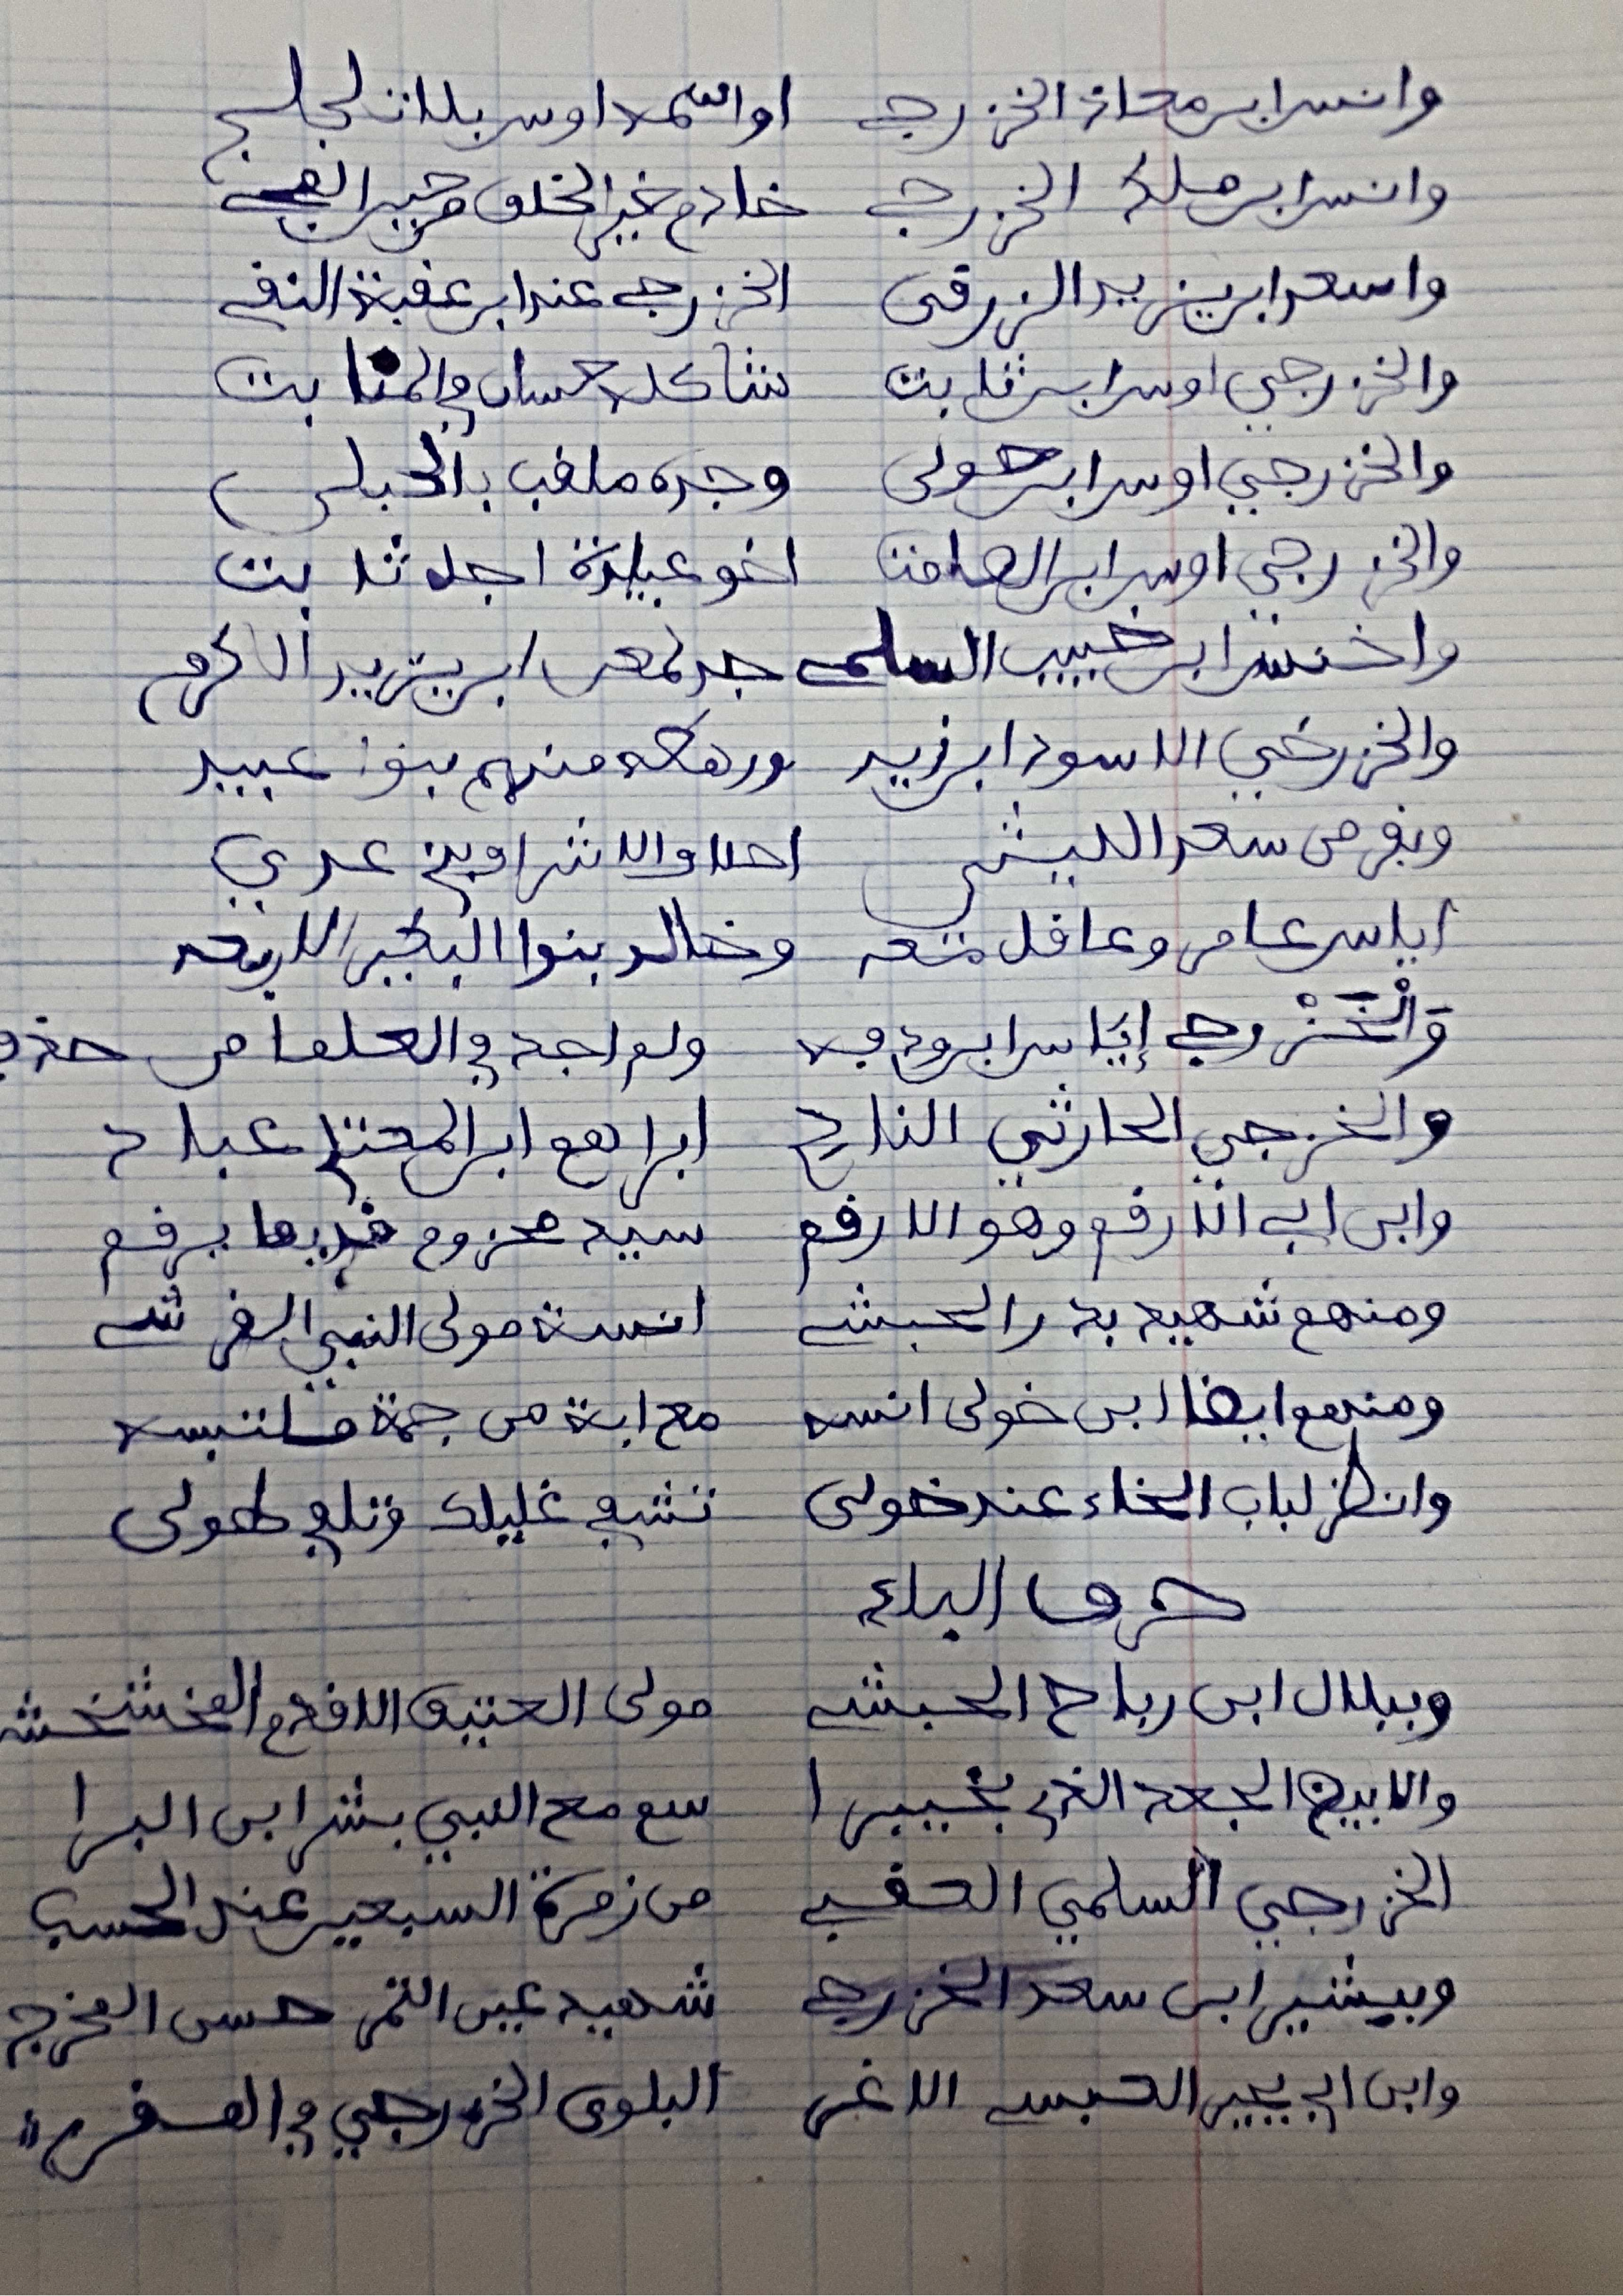 وانس ابن معاذ الخزرجي او اسمه اوس بلا تلجلج
وانس ابن ملك الخزرجي خادم خير الخلق من خير
واسعد ابن يزيد الزرقى الخزرجي عند ابن عقبة التقي
والخزرجي اوس ابن ثابت شاكله حسان في المنابت
والخزرجي اوس ابن خولى وجده ملقب بالحبلى
والخزرجي اوس ابن الصامت اخو عبادة اجل ثابت
واخنس ابن خبيب السلمي جد لمعن ابن يزيد الاكرم
والخزرجي الاسود ابن زيد ورهطه منهم بنوا عبيد
وبفرض سعد الليثي احلا والاشراف في عدي
اياس عامر وعاقل معه وخالد بنوا البكير الاربعه
والخزرجي إياس ابن ودفه ولم اجد في العلما من حذفه
والخزجي الحارثي النادي ابراهم ابن المعتز عباد
وابن ابي الارقم وهو الارقم سيد مخزوم قديما يرقم
ومنهم شهيد بدر الحبشي انسة مولى النبي القرشي
ومنهم ايضا ابن خولى انسه مع ابة من جمة ملتبسه
وانظر لباب الخاء عند خولى تشفي غليلك وتلفي طولى
حرف الباء
وببلال ابن رباح الحبشي مولى العتيق الاقدم المخشخش
والابيض الجعد الذي بخيبرا سم مع النبي بشر ابن البرا
الخزرجي السلمي العقبي من زمرة السبعين عند الحسب
وبشير ابن سعد الخزرجي شهيد عين التمر حسن المخرج
وابن ابي العبسي الاغر البلوى الخزرجي في المفر